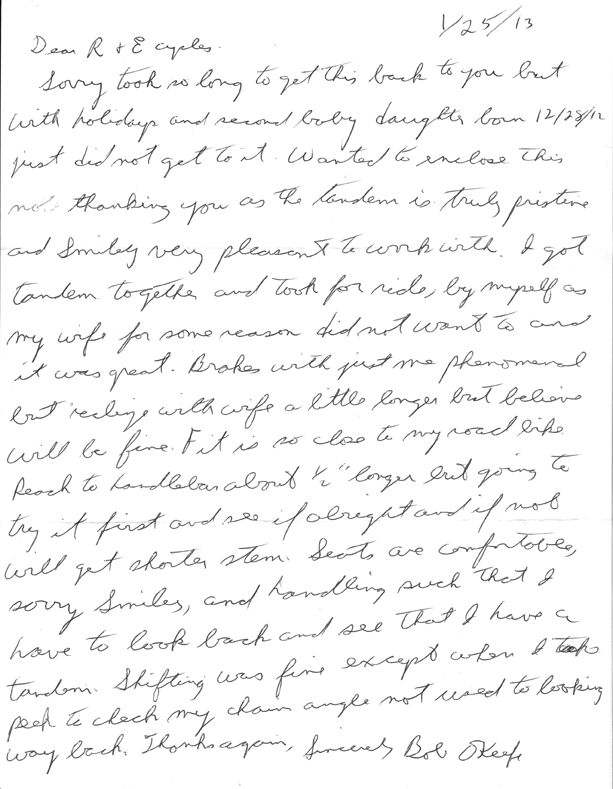 1/25/13
Dear R & E cycles.
Sorry took so long to get this back to you but
with holidays and second baby daughter born 12/28/12
just did not get to it. Wanted to enclose this
thanking you as the tandem is truly pristine
and Smiley very pleasant to work with. I got
tandem together and took for ride, by myself as
my wife for some reason did not want to and
it was great. Brakes with just me phenomenal
but realize with wife a little longer but believe
will be fine. Fit is so close to my road bike
Reach to handlebar about 1/2" longer but going to
try it first and see if alright and if not
will get shorter stem. Seats are comfortable,
sorry Smiley, and handling such that I
have to look back and see that I have a
tandem. Shifting was fine except when I
peek to check my chain angle not used to looking
way back. Thanks again, Sincerely Bob O'Keefe